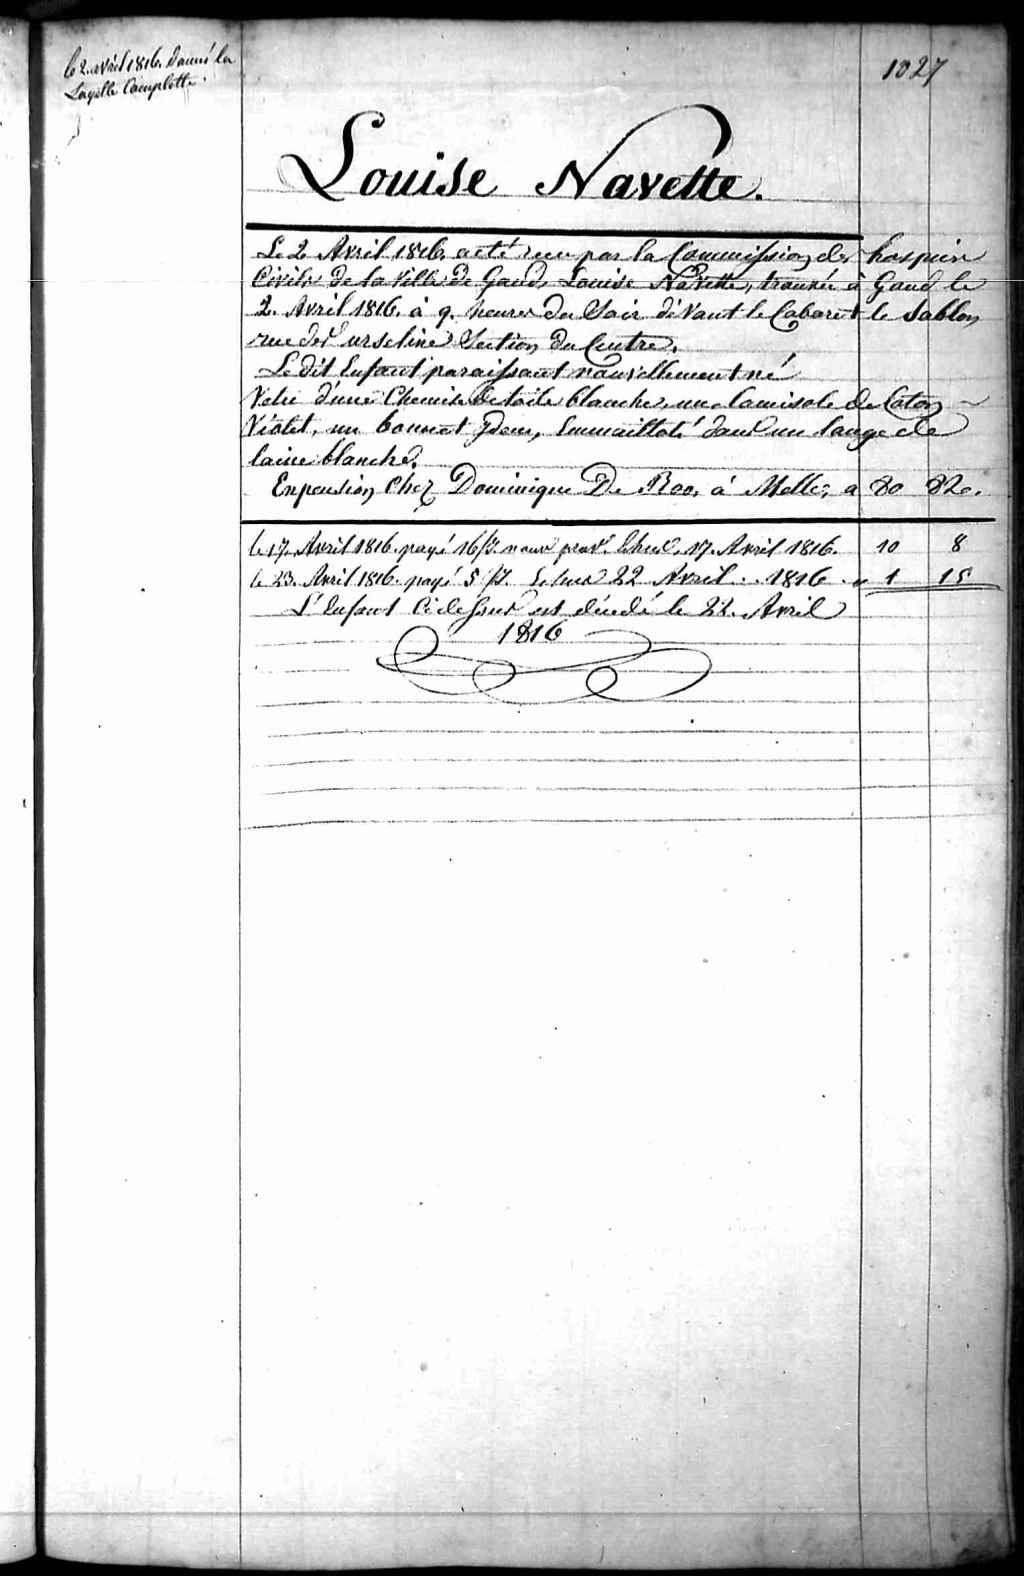 le 2. avril 1816. donné la
Layette Complette
1027
Louise Navette.
Le 2 Avril 1816. a eté recu par la Commission des hospices
Civils de la Ville de Gand, Louise Navette, trouvée à Gand le
2. Avril 1816. à 9. heures du Soir devant le Cabaret le Sablon
rue des urseline Section du Centre.
Le dit Enfant paraissant nouvellement né
Vetu d'une Chemise de toile blanche, une Camisole de Coton
Violet, un bonnet Idem, Emmailloté dans un lange de
laine blanche.
En pension Chez Dominique De Roo, à Melle, a 80 82c.
le 17. Avril 1816. payé 16/J. nour 17. Avril 1816. 10 8
le 23. Avril 1816. payé 5/J. 22 Avril .. 1816 . " 1 15
L'Enfant Cidessus est décédé le 22. Avril
1816